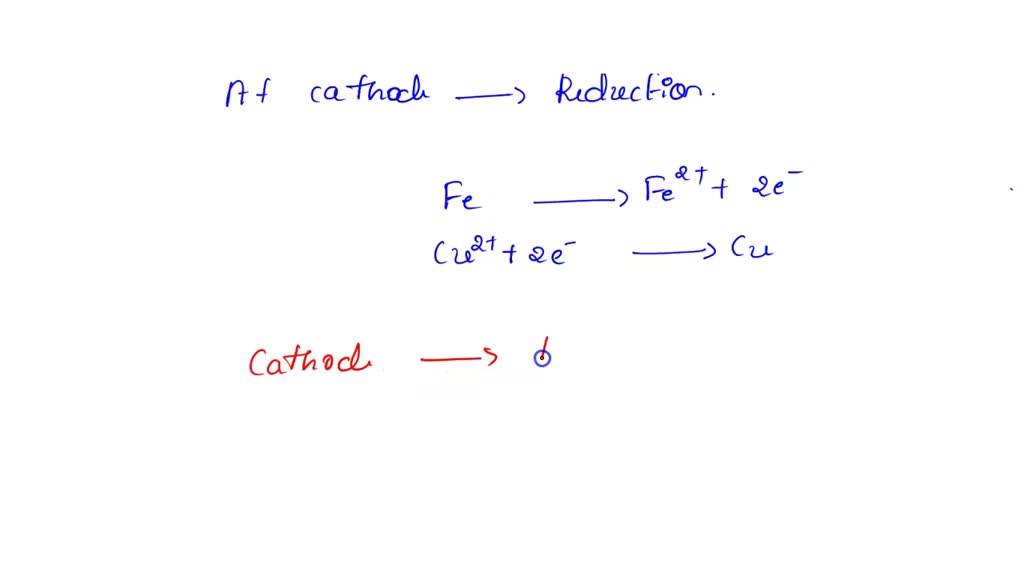 At cathode → Reduction.
Fe → Fe²⁺ + 2e⁻
Cu²⁺ + 2e⁻ → Cu
Cathode →